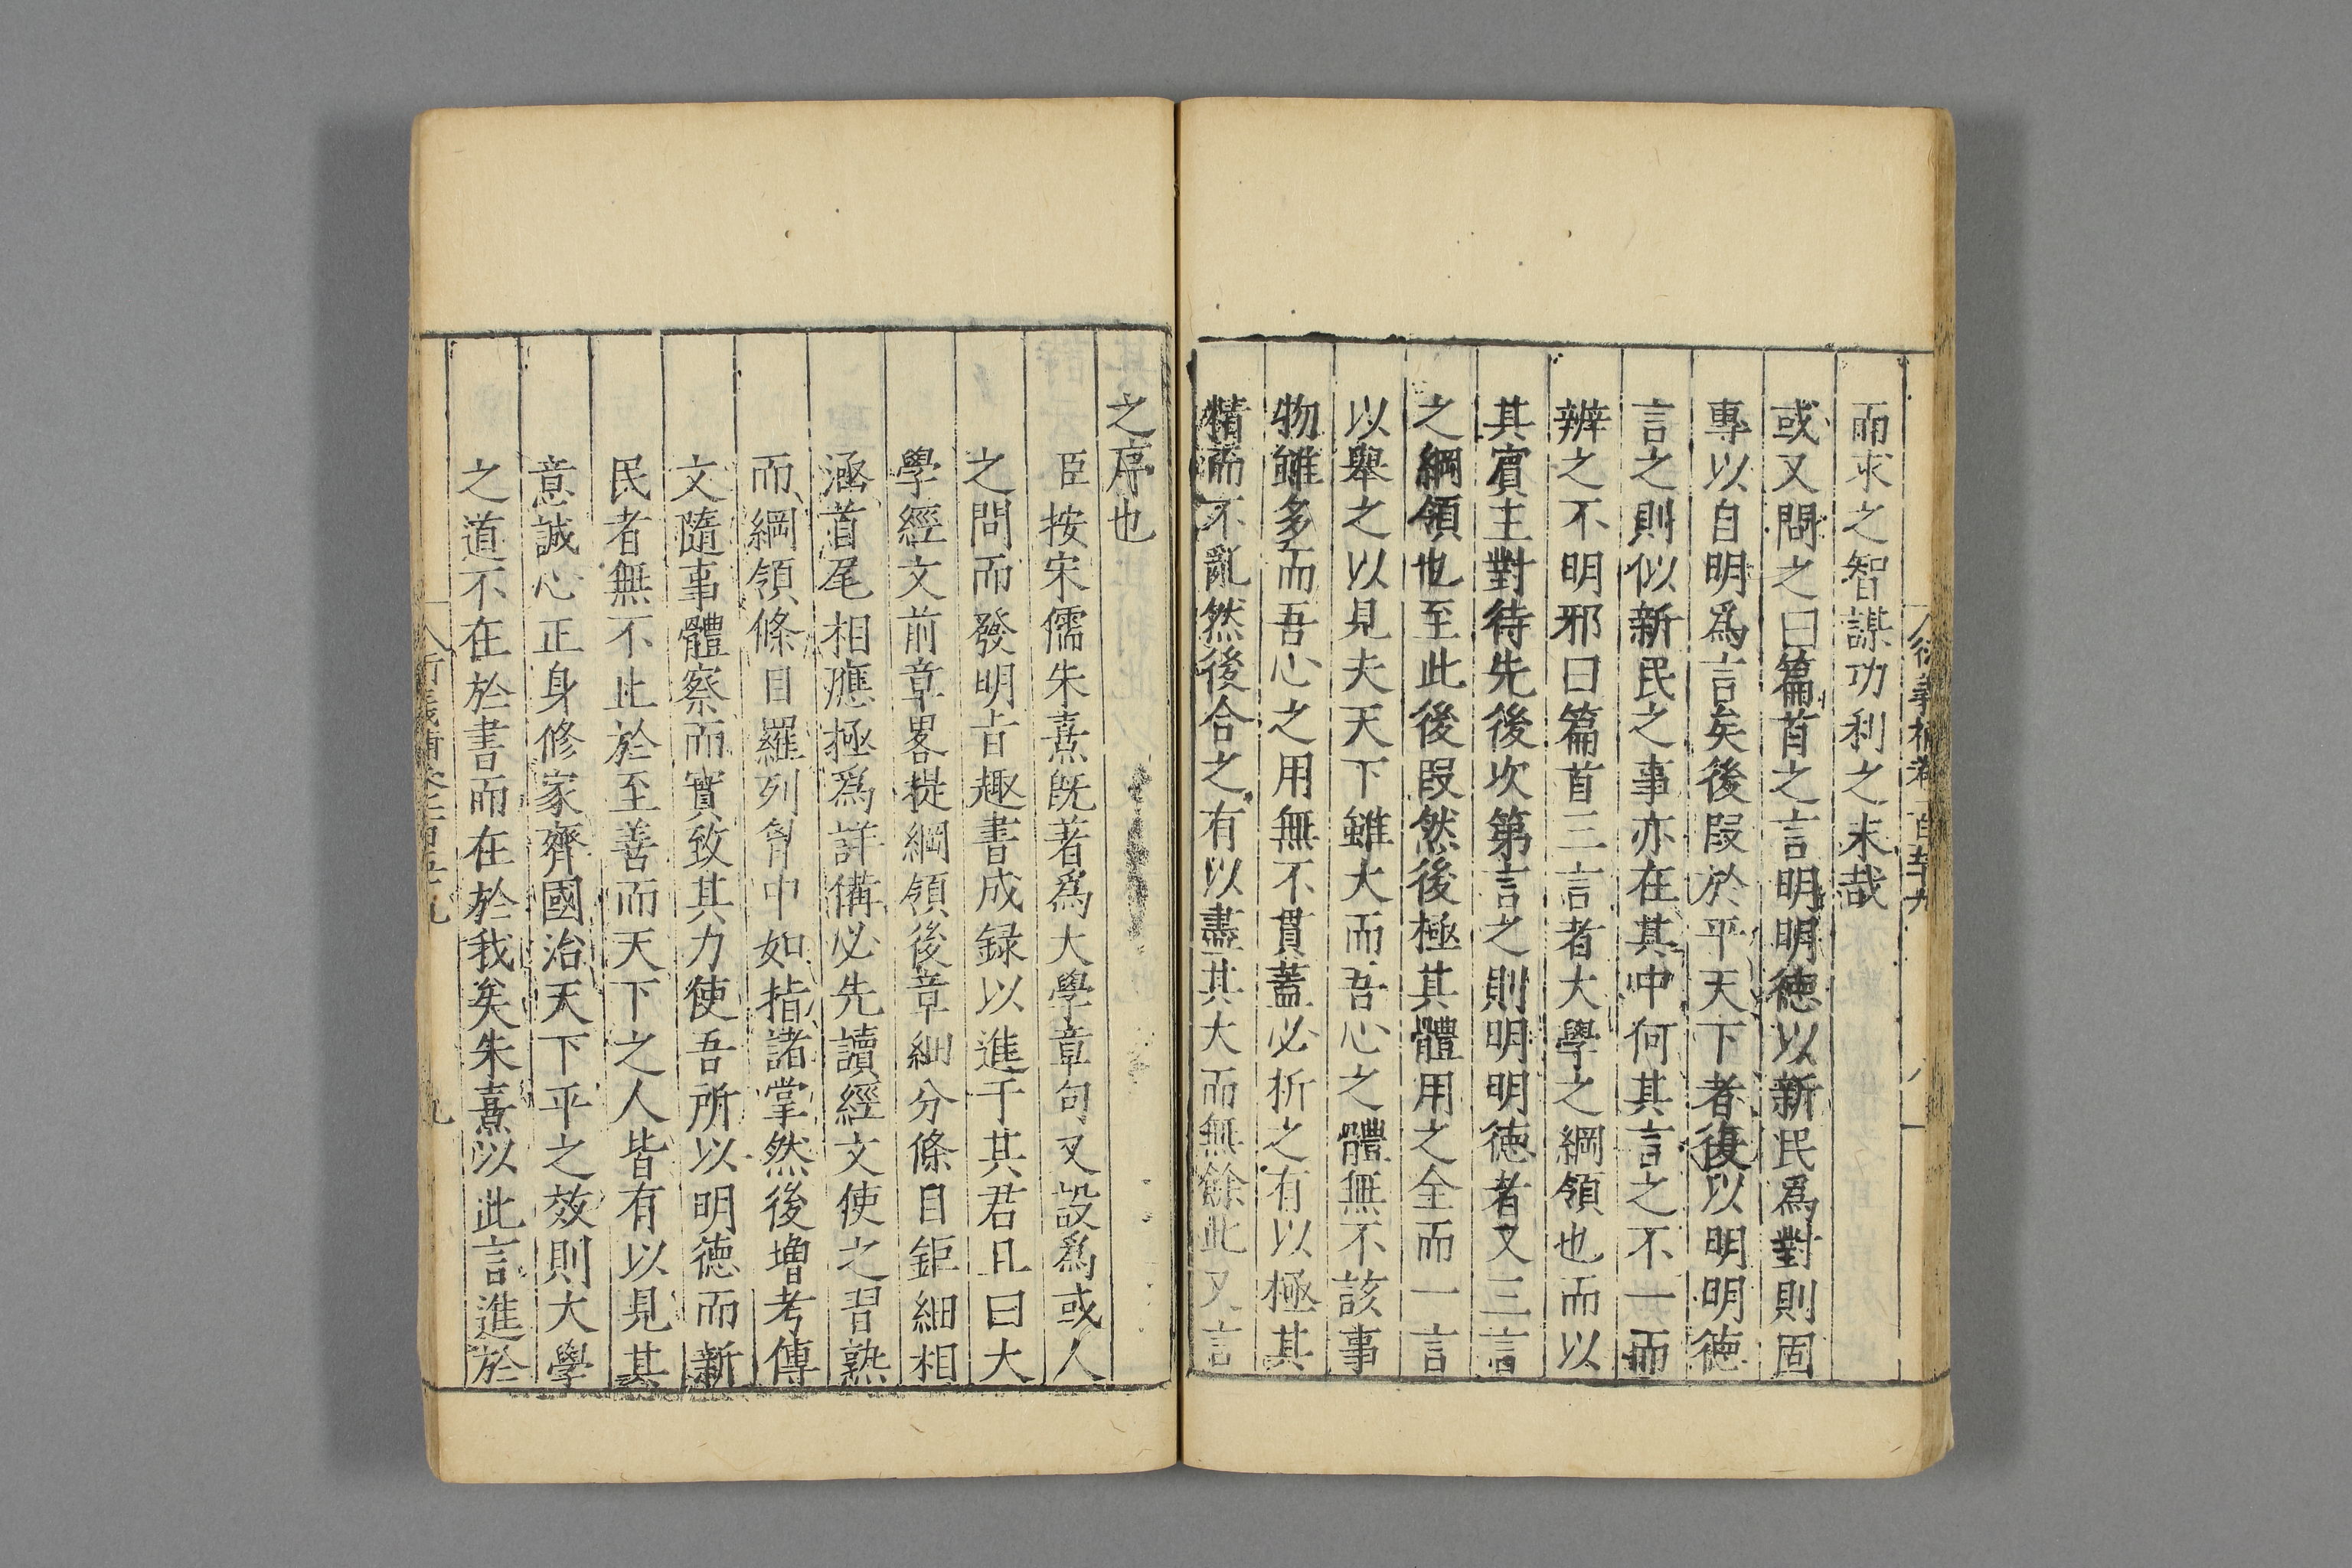 而求之智謀功利之末哉
或又問之曰篇首之言明明德以新民爲對則固
專以自明爲言矣後叚於平天下者復以明明德
言之則似新民之事亦在其中何其言之不一而
辨之不明邪曰篇首三言者大學之綱領也而以
其賓主對待先後次第言之則明明德者又三言
之綱領也至此後叚然後極其體用之全而一言
以舉之以見夫天下雖大而吾心之體無不該事
物雖多而吾心之用無不貫蓋必折之有以極其
精而不亂然後合之有以盡其大而無餘此又言
之序也
臣按宋儒朱熹旣著爲大學章句又設爲或人
之問而發明㫖趣書成録以進于其君且曰大
學經文前章畧提綱領後章細分條目鉅細相
涵首尾相應極爲詳備必先讀經文使之習熟
而綱領條目羅列胷中如指諸掌然後增考傳
文隨事體察而實致其力使吾所以明德而新
民者無不止於至善而天下之人皆有以見其
意誠心正身修家齊國治天下平之效則大學
之道不在於書而在於我矣朱熹以此言進於